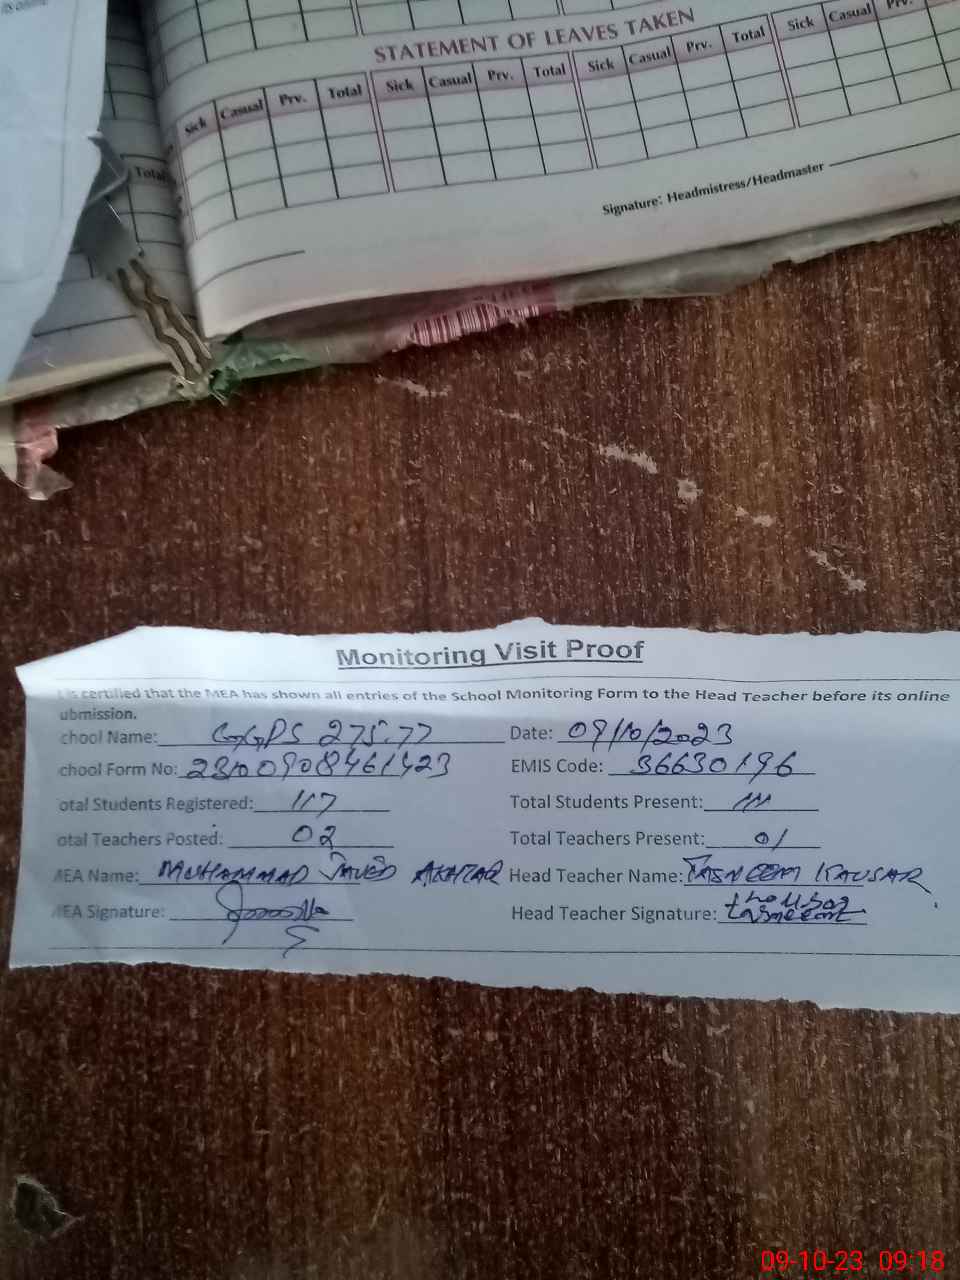 its online
STATEMENT OF LEAVES TAKEN
Sick Casual Prv. Total Sick Casual Prv. Total Sick Casual Prv. Total Sick Casual Prv.
Total
Signature: Headmistress/Headmaster
Monitoring Visit Proof
is certified that the MEA has shown all entries of the School Monitoring Form to the Head Teacher before its online
ubmission.
chool Name: GGPS 275.77 Date: 09/10/2023
chool Form No: EMIS Code: 36630196
otal Students Registered: 117 Total Students Present: 111
otal Teachers Posted: 02 Total Teachers Present: 01
MEA Name: MUHAMMAD JAVED AKHTAR Head Teacher Name: TASNEEM KAUSAR
MEA Signature: Head Teacher Signature:
09-10-23 09:18